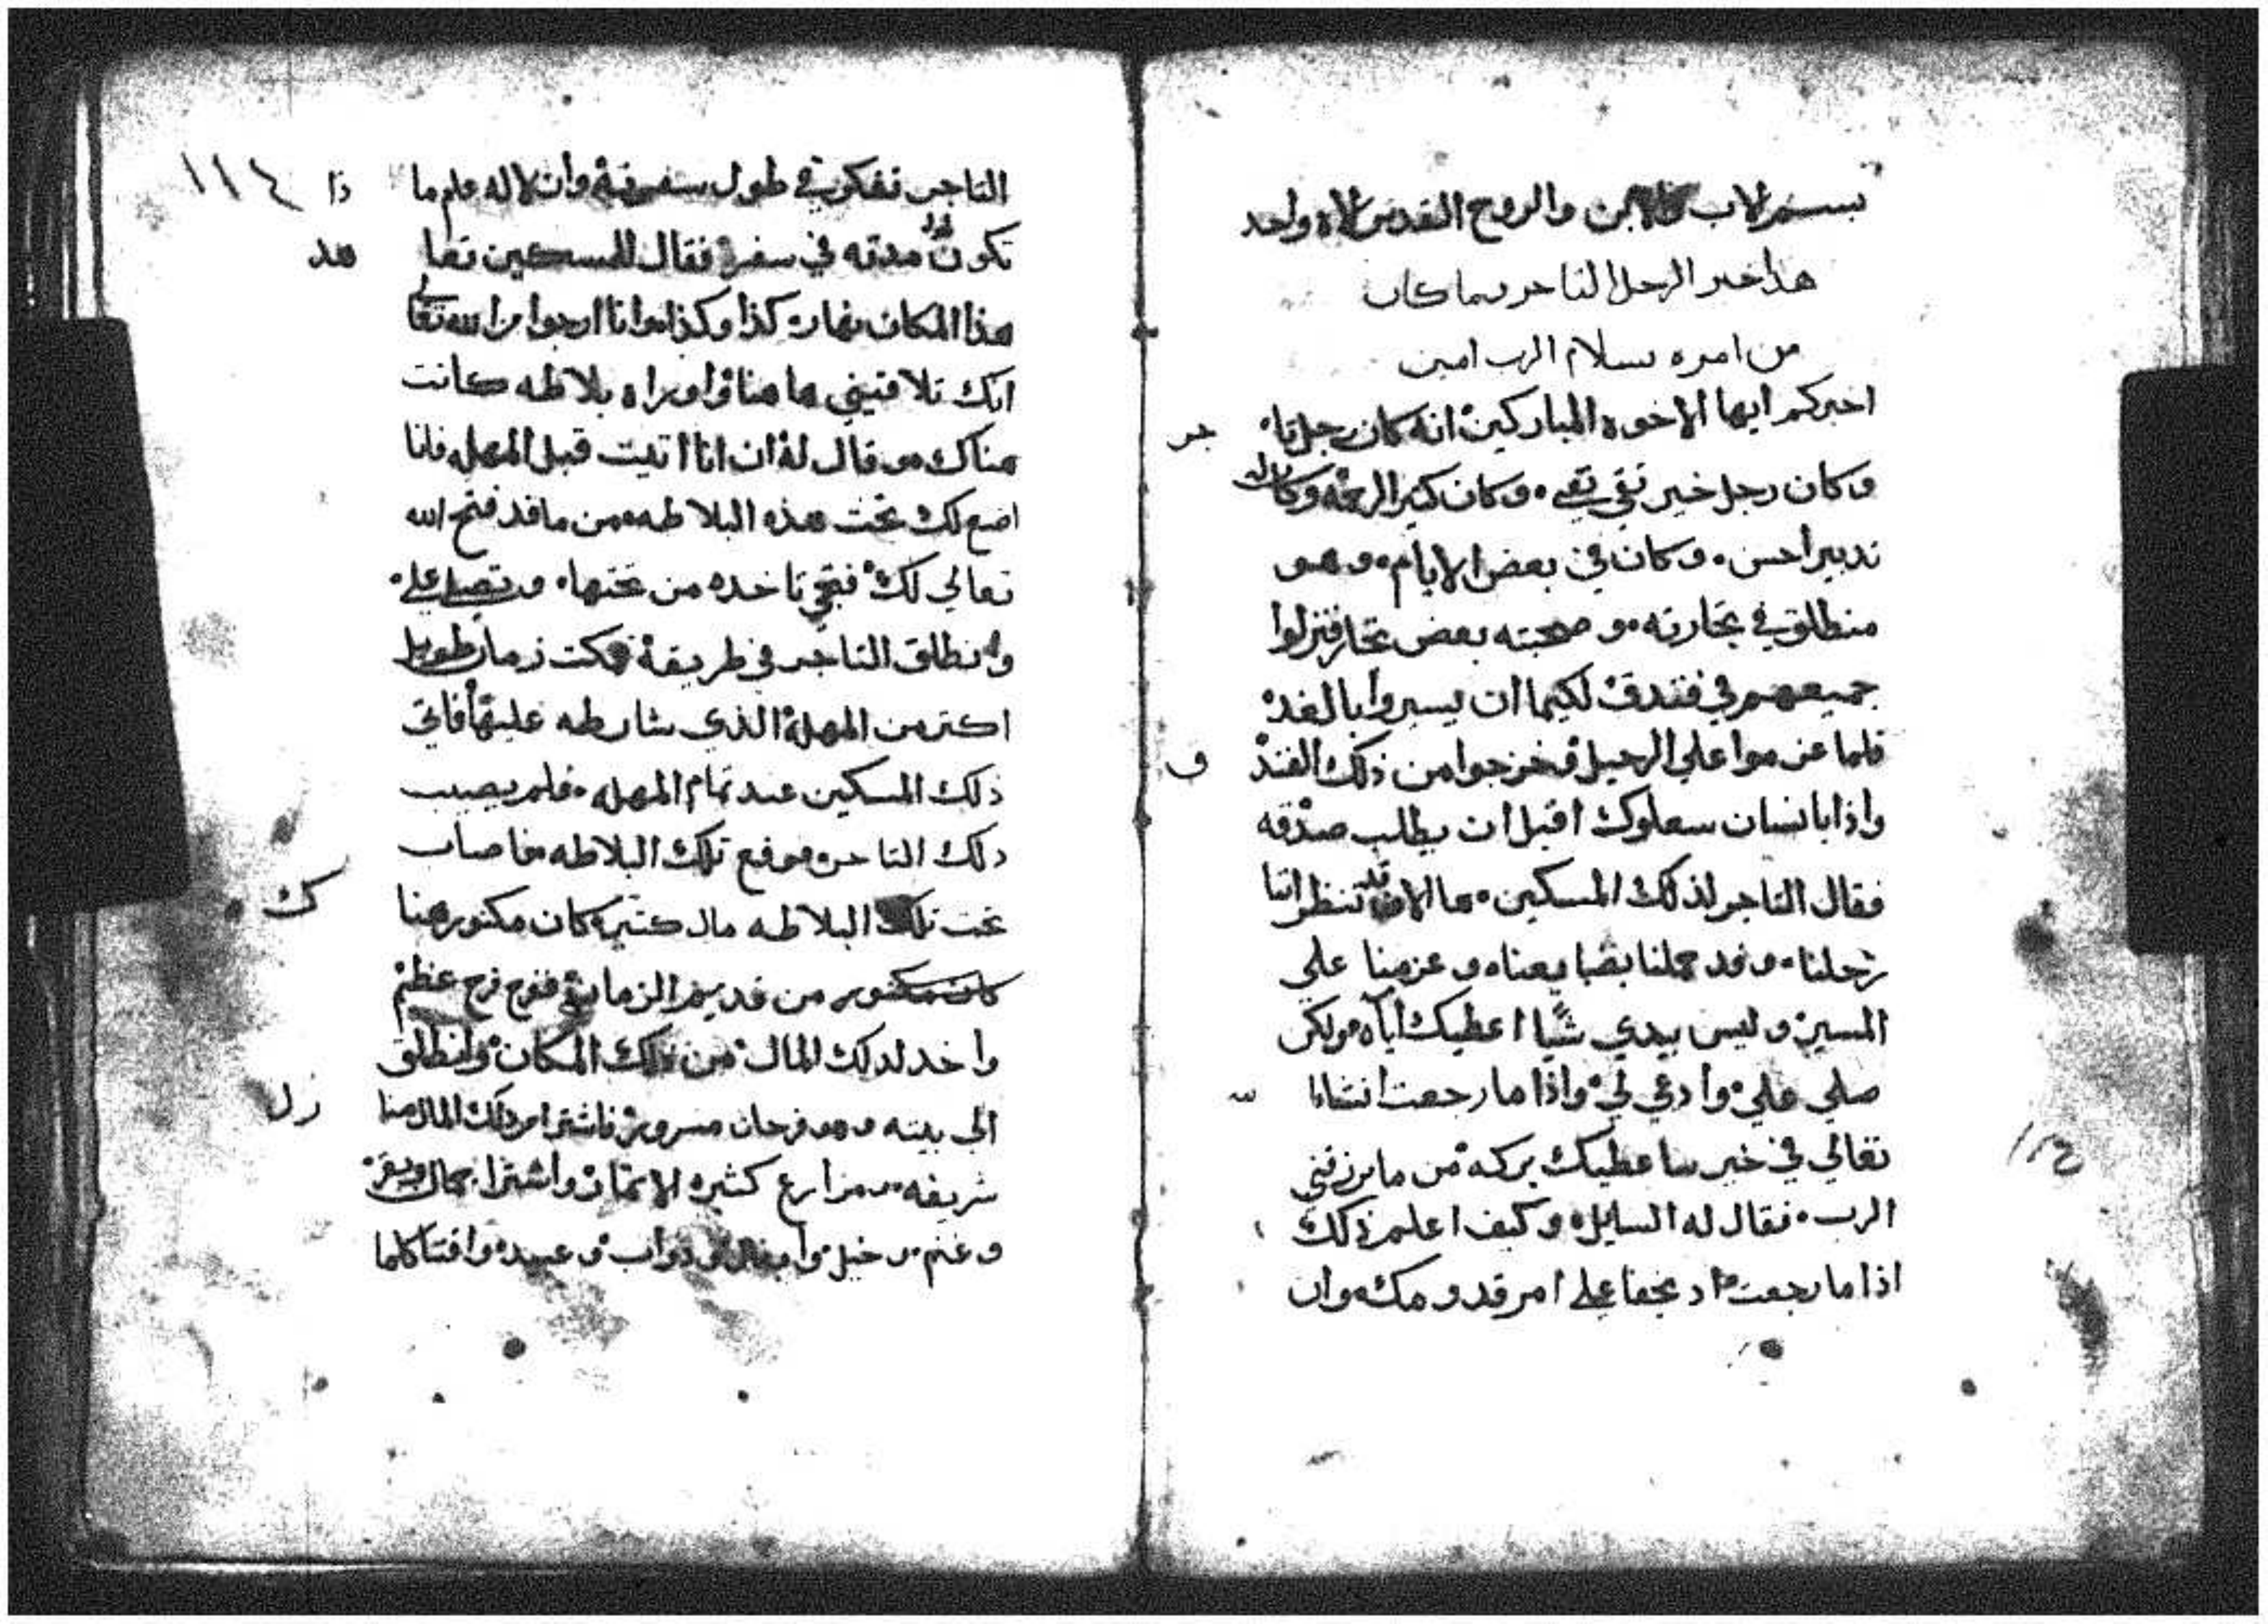 بسم الاب والابن والروح القدس الاه واحد
هذا خبر الرجل التاجر وما كان
من امره بسلام الرب امين
اخبركم ايها الاخوه المباركين انه كان رجل تا جر
وكان رجل خير نقي تقي وكان كتير الرحمه وكان له
تدبيرا حسن وكان في بعض الايام وهو
منطلق في تجارته وصحبته بعض تجار فنزلوا
جميعهم في فندق لكيما ان يسيروا بالغد
فلما عزموا علي الرحيل فخرجوا من ذلك الفند ق
واذا بانسان سعلوك اقبل ان يطلب صدقه
فقال التاجر لذلك المسكين ها الان قد تنظر اننا
رحلنا وقد حملنا بضايعنا وعزمنا علي
المسير وليس بيدي شيا اعطيك اياه ولكن
صلي علي وادعي لي واذا ما رجعت انشا ا لله
تعالي في خير سا عطيك بركه من ما يرزقني
الرب فقال له السايل وكيف اعلم ذلك
اذا ما رجعت اد يخفا علي امر قدومك وان
التاجر تفكر في طول سفرته وان لا له علم ما ذا ١١٤
تكون مدته في سفره فقال للمسكين تعا هد
هذا المكان نهار كذا وكذا وانا ارجوا من الله تعالي
انك تلاقيني هاهنا واوراه بلاطه كانت
هناك وقال له ان انا اتيت قبل المهله فانا
اضع لك تحت هذه البلاطه من ما قد فتح الله
تعالي لك فتجي تاخده من تحتها وتصلي علي
وانطلق التاجر في طريقه فمكت زمان طويل
اكتر من المهلة الذي شارطه عليها فاتي
ذلك المسكين عند تمام المهله فلم يصيب
دلك التاجر فرفع تلك البلاطه فاصاب
تحت تلك البلاطه مال كتير كان مكنوز هنا ك
من قديم الزمان ففرح فرح عظيم
واخد لدلك المال من دلك المكان وانطلق
الي بيته وهو فرحان مسرور فاشترا من دلك المال منا زل
شريفه ومزارع كثيره الاتمان واشترا جمال وبقر
وغنم وخيل وابغال ودواب وعبيد واقتنا كلما